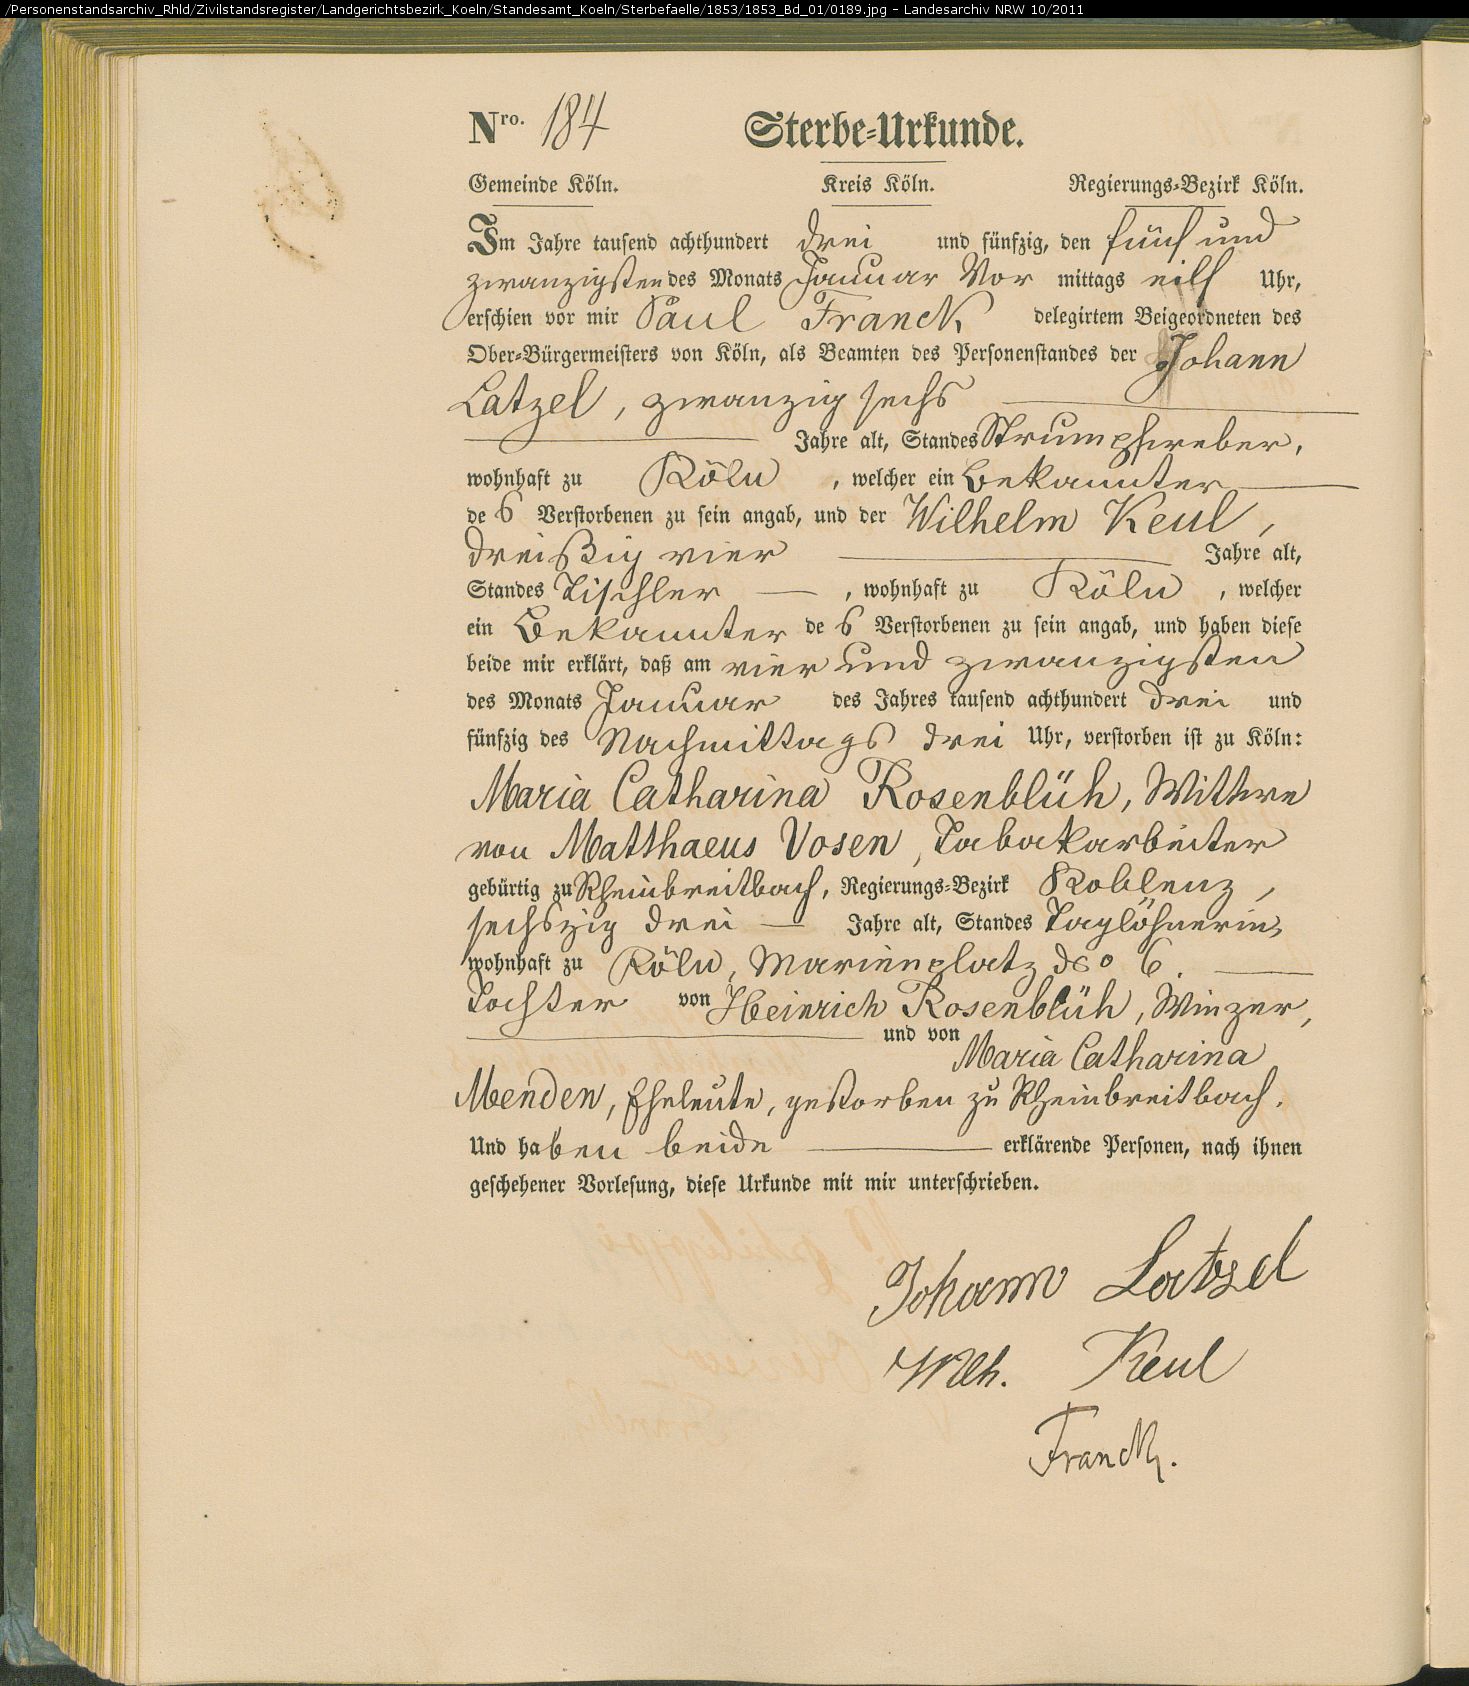 /Personenstandsarchiv_Rhld/Zivilstandsregister/Landgerichtsbezirk_Koeln/Standesamt_Koeln/Sterbefaelle/1853/1853_Bd_01/0189.jpg - Landesarchiv NRW 10/2011
Nro. 184 Sterbe=Urkunde.
Gemeinde Köln. Kreis Köln. Regierungs=Bezirk Köln.
Im Jahre tausend achthundert drei und fünfzig, den fünf und
zwanzigsten des Monats Januar Vor mittags eilf Uhr,
erschien vor mir Paul Franck, delegirtem Beigeordneten des
Ober=Bürgermeisters von Köln, als Beamten des Personenstandes der Johann
Latzel, zwanzig sechs
Jahre alt, Standes Strumpfweber,
wohnhaft zu Köln, welcher ein Bekannter
des Verstorbenen zu sein angab, und der Wilhelm Keul,
dreißig vier Jahre alt,
Standes Tischler, wohnhaft zu Köln, welcher
ein Bekannter des Verstorbenen zu sein angab, und haben diese
beide mir erklärt, daß am vier und zwanzigsten
des Monats Januar des Jahres tausend achthundert drei und
fünfzig des Nachmittags drei Uhr, verstorben ist zu Köln:
Maria Catharina Rosenblüh, Wittwe
von Matthaeus Vosen, Tabakarbeiter
gebürtig zu Rheinbreitbach, Regierungs=Bezirk Koblenz,
sechszig drei Jahre alt, Standes Taglöhnerin,
wohnhaft zu Köln, Marienplatz No 6.
Tochter von Heinrich Rosenblüh, Winzer,
und von
Maria Catharina
Menden, Eheleute, gestorben zu Rheinbreitbach.
Und haben beide erklärende Personen, nach ihnen
geschehener Vorlesung, diese Urkunde mit mir unterschrieben.
Johann Latzel
Wilh. Keul
Franck.